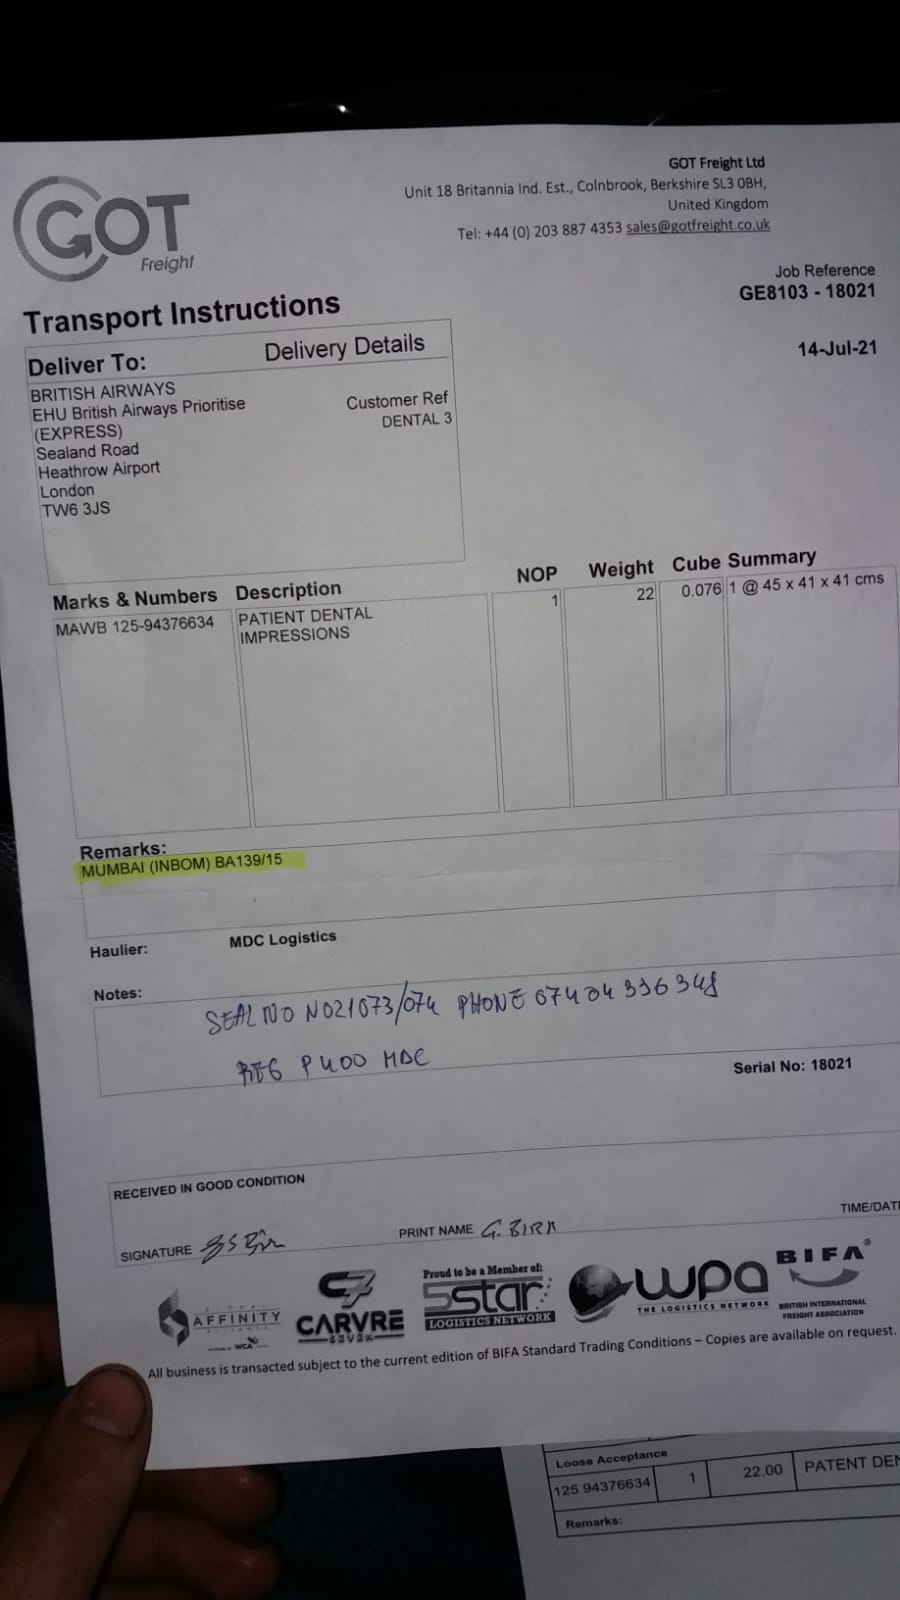 GOT
Freight
GOT Freight Ltd
Unit 18 Britannia Ind. Est., Colnbrook, Berkshire SL3 0BH,
United Kingdom
Tel: +44 (0) 203 887 4353 sales@gotfreight.co.uk
Job Reference
GE8103 - 18021
Transport Instructions
14-Jul-21
Deliver To: Delivery Details
BRITISH AIRWAYS
EHU British Airways Prioritise
(EXPRESS)
Sealand Road
Heathrow Airport
London
TW6 3JS
Customer Ref
DENTAL 3
Marks & Numbers Description NOP Weight Cube Summary
MAWB 125-94376634 PATIENT DENTAL 1 22 0.076 1 @ 45 x 41 x 41 cms
IMPRESSIONS
Remarks:
MUMBAI (INBOM) BA139/15
Haulier: MDC Logistics
Notes:
SEAL NO N021073/074 PHONE 07404336348
REG P400 MDC
Serial No: 18021
RECEIVED IN GOOD CONDITION
TIME/DAT
SIGNATURE
PRINT NAME G. BIRK
AFFINITY
WCA
CARVRE
SEVEN
Proud to be a Member of:
5star
LOGISTICS NETWORK
wpa
THE LOGISTICS NETWORK
BIFA
BRITISH INTERNATIONAL
FREIGHT ASSOCIATION
All business is transacted subject to the current edition of BIFA Standard Trading Conditions – Copies are available on request.
Loose Acceptance
125 94376634 1 22.00 PATENT DEN
Remarks: